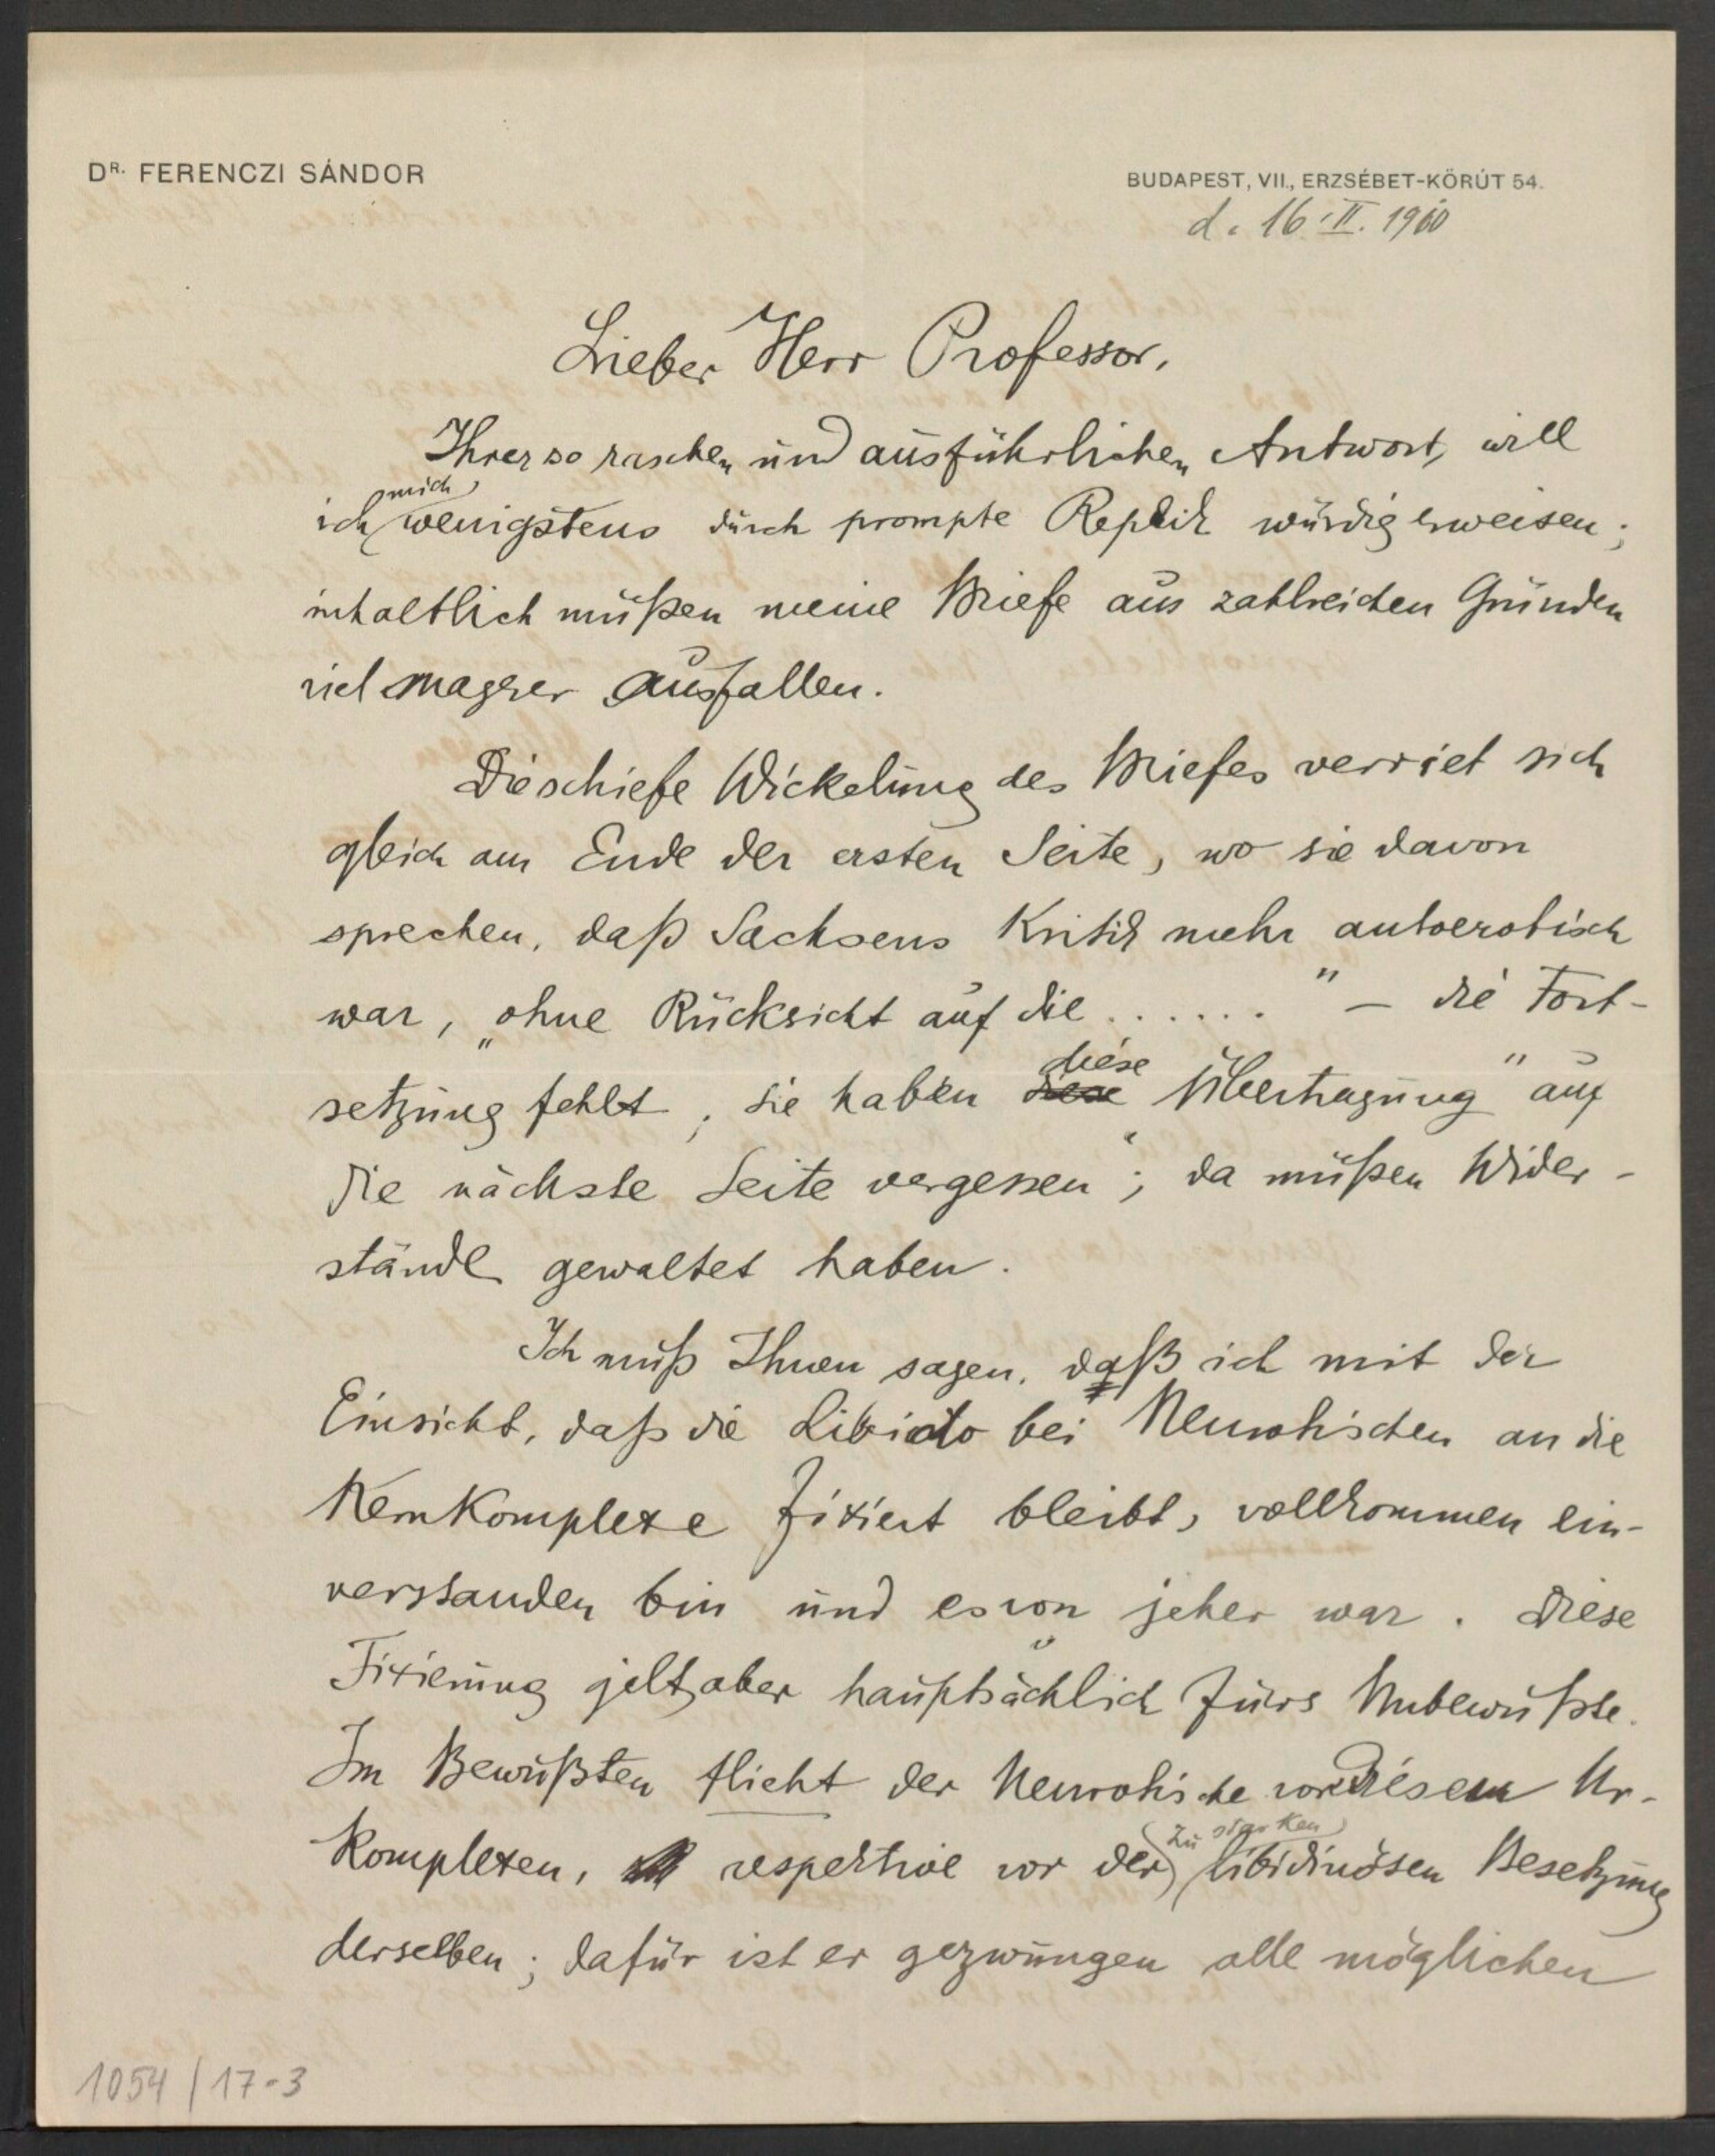 DR. FERENCZI SÁNDOR
BUDAPEST, VII., ERZSÉBET-KÖRÚT 54.
d. 16. II. 1910
Lieber Herr Professor,
Ihrer so raschen und ausführlichen Antwort, will
mich
ich wenigstens durch prompte Replik würdig erweisen;
inhaltlich müßen meine Briefe aus zahlreichen Gründen
viel magrer ausfallen.
Die schiefe Wickelung des Briefes verriet sich
gleich am Ende der ersten Seite, wo sie davon
sprechen, daß Sachsens Kritik mehr autoerotisch
war, „ohne Rücksicht auf die ......" – die Fort-
setzung fehlt; sie haben diese
diese „Übertragung" auf
die nächste Seite vergessen; da müßen Wider-
stände gewaltet haben.
Ich muß Ihnen sagen, daß ich mit der
Einsicht, daß die Libido bei Neurotischen an die
Kernkomplexe fixiert bleibt, vollkommen ein-
verstanden bin und es von jeher war. Diese
Fixierung gilt aber hauptsächlich fürs Unbewußte.
Im Bewußten flieht der Neurotische vor diesen Ur-
zu starken
Komplexen, respektive vor der libidinösen Besetzung
derselben; dafür ist er gezwungen alle möglichen
1054/17-3